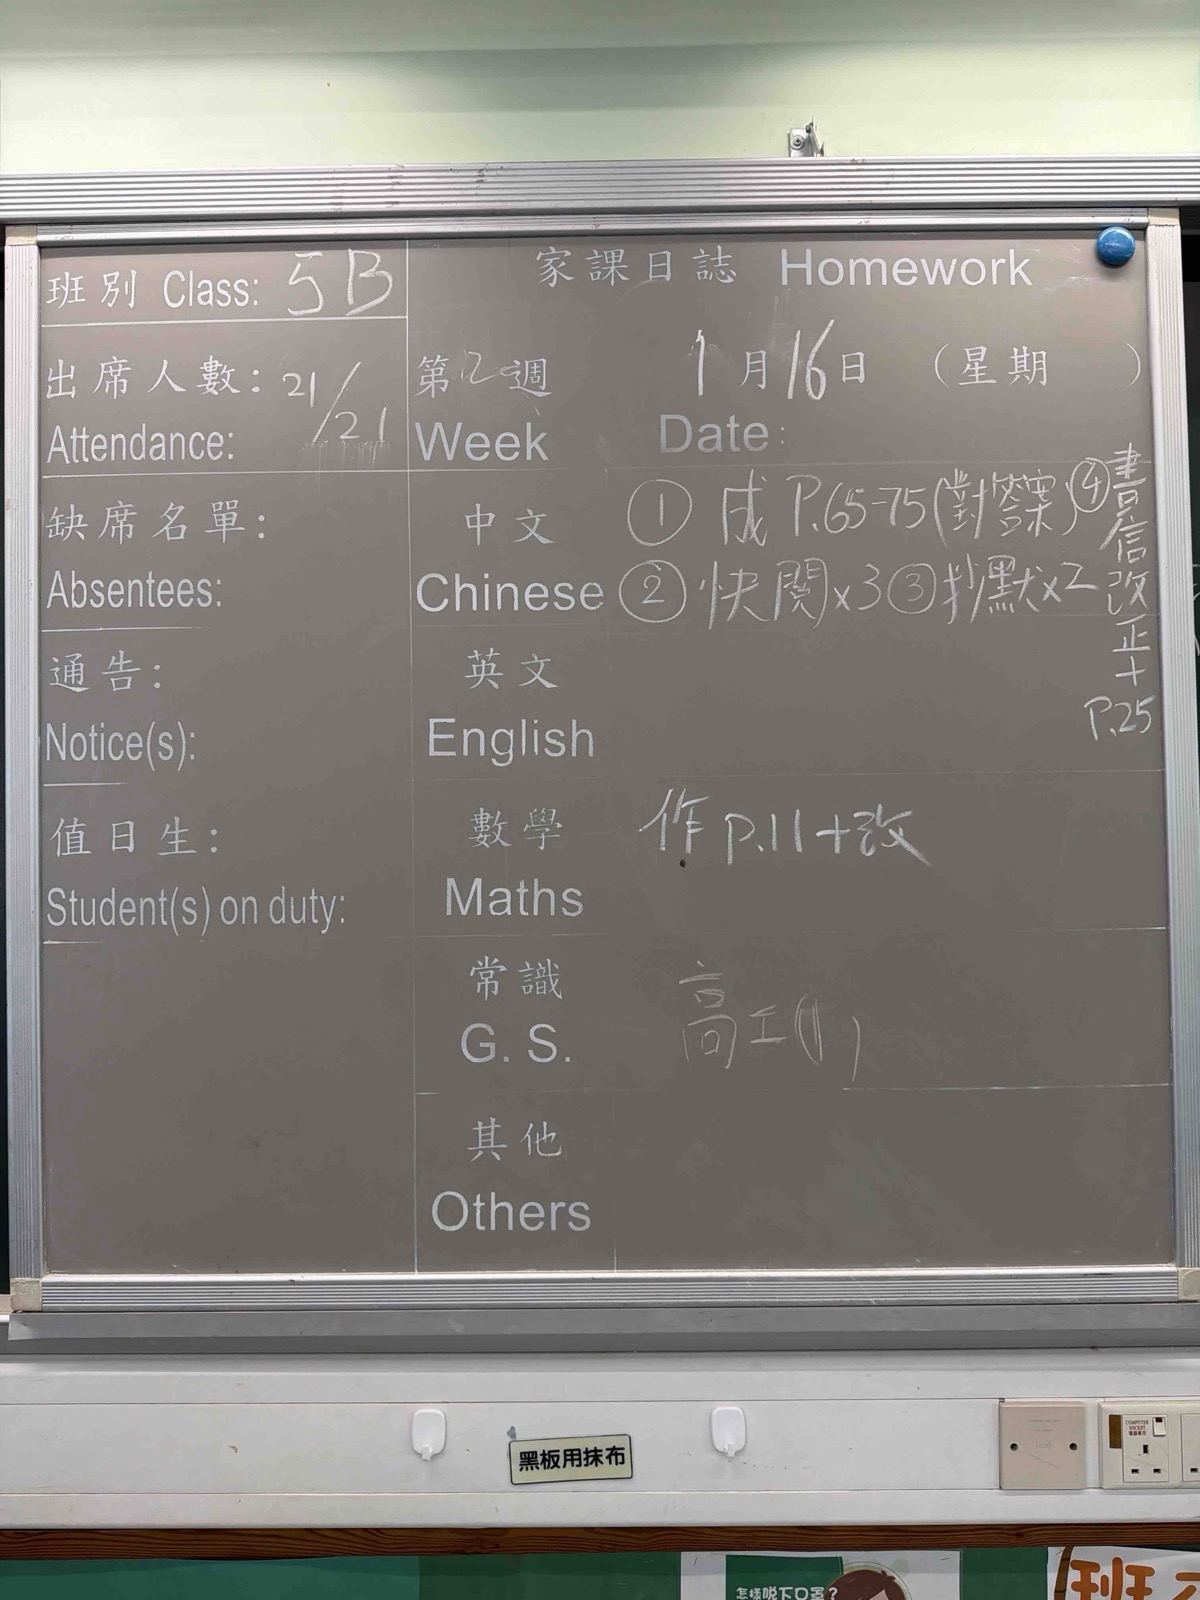 班別 Class: 5B
家課日誌 Homework
出席人數: 21/21
Attendance:
第12週 1月16日 (星期 )
Week Date:
缺席名單:
Absentees:
中文 ① 成 P.65-75(對答案)
Chinese ② 快閱x3 ③ 抄默x2
④ 書信改正+P.25
通告:
Notice(s):
英文
English
值日生:
Student(s) on duty:
數學 作 P.11+改
Maths
常識 高工
G. S.
其他
Others
黑板用抹布
COMPUTER
SOCKET
電腦專用
怎樣脫下口罩?
班